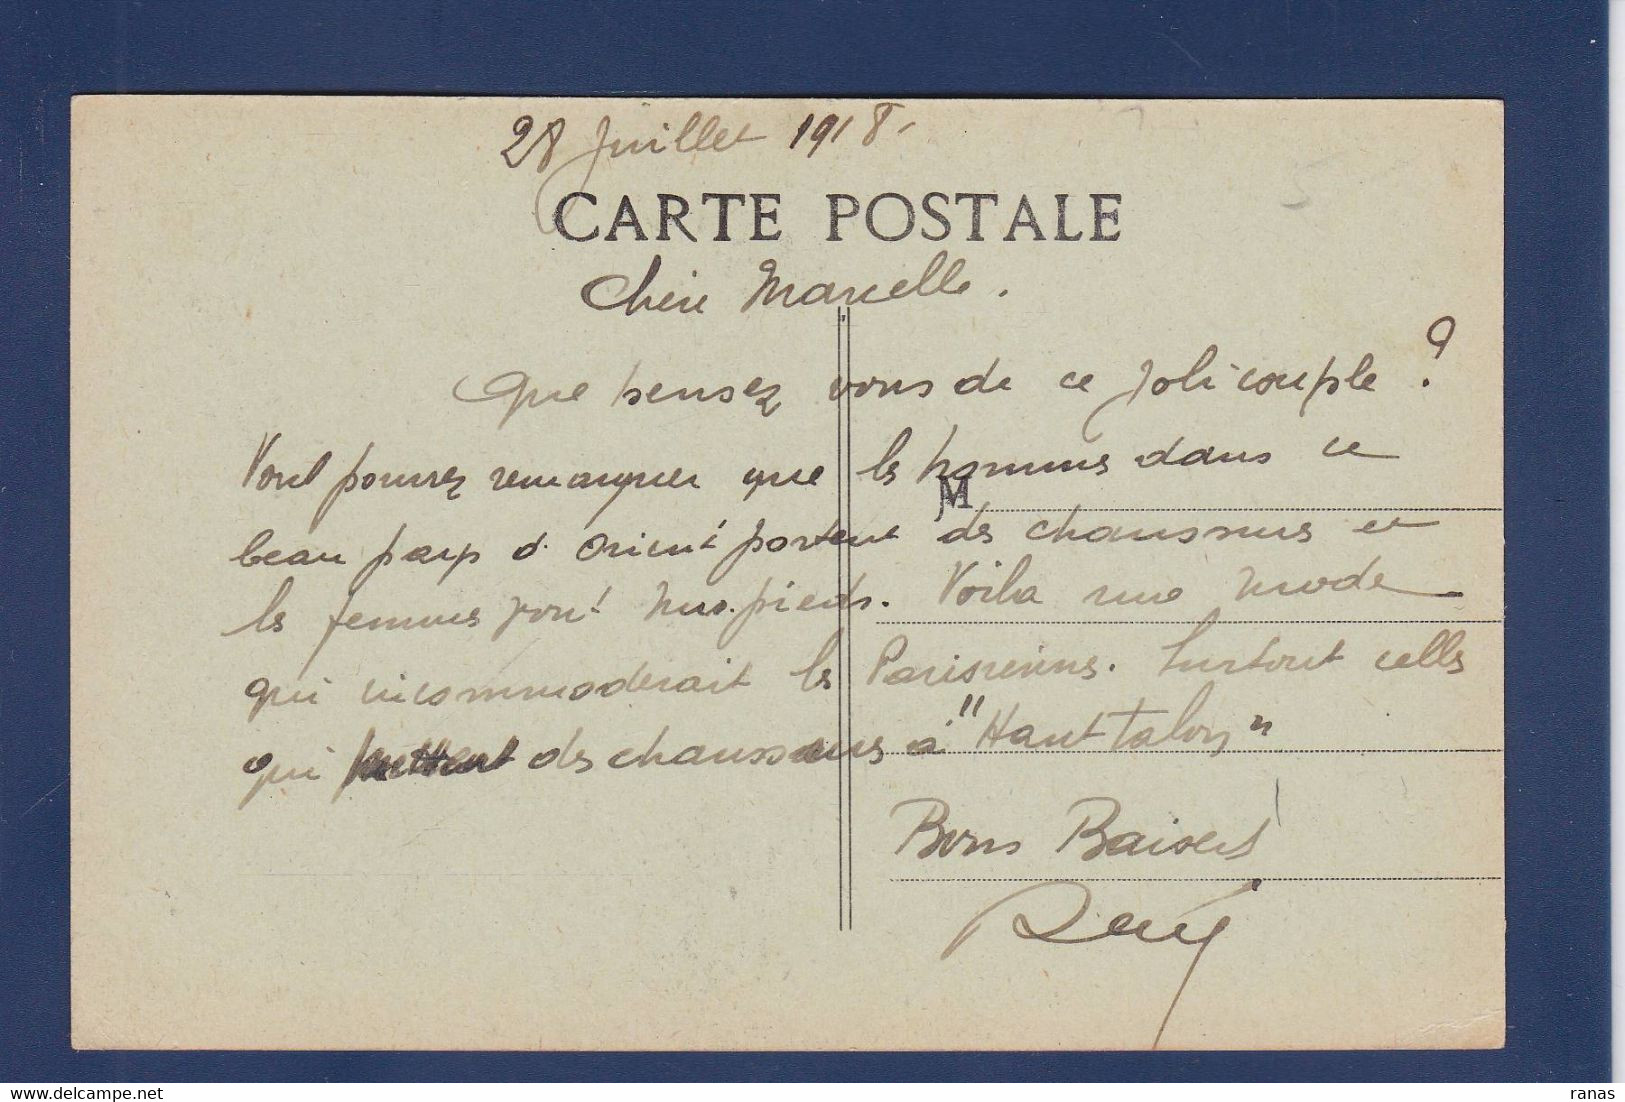 28 Juillet 1918.
CARTE POSTALE
Chère Marcelle.
Que pensez vous de ce joli couple ?
Vous pourrez remarquer que les hommes dans ce
M
beau pays d'Orient portent des chaussures et
les femmes vont nus.pieds. Voila une mode
qui incommoderait les Parisiennes. Surtout celles
qui mettent des chaussures à "Haut talons"
Bons Baisers
ranas